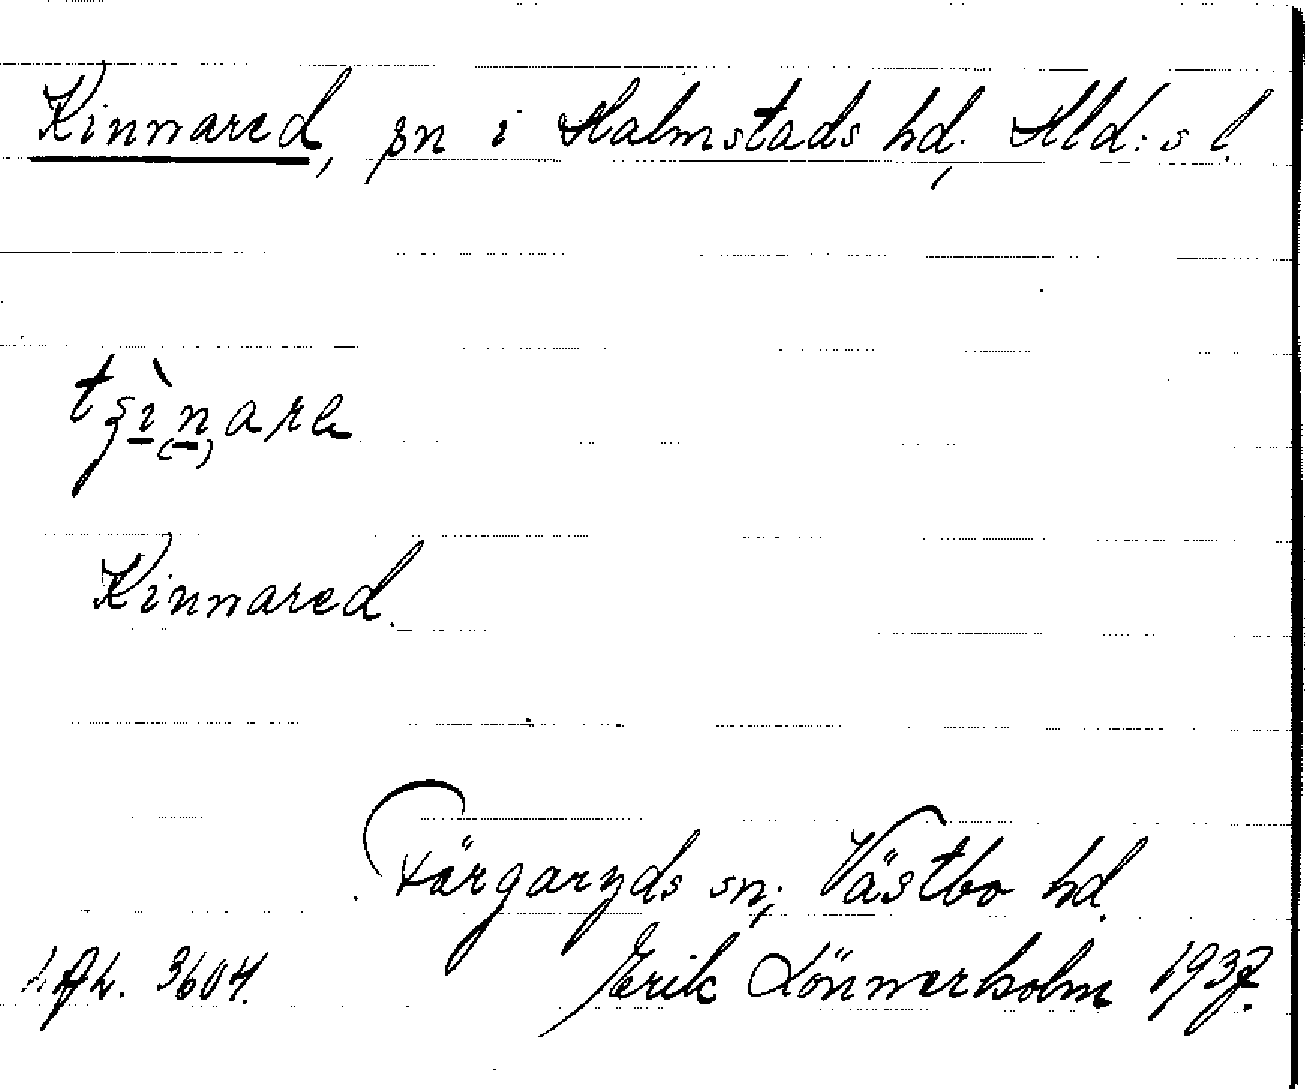 Kinnared, sn i Halmstads hd, Hld:s l.
Kinnared.
Färgaryds sn, Västbo hd.
3604. Erik Lönnerholm 1937.